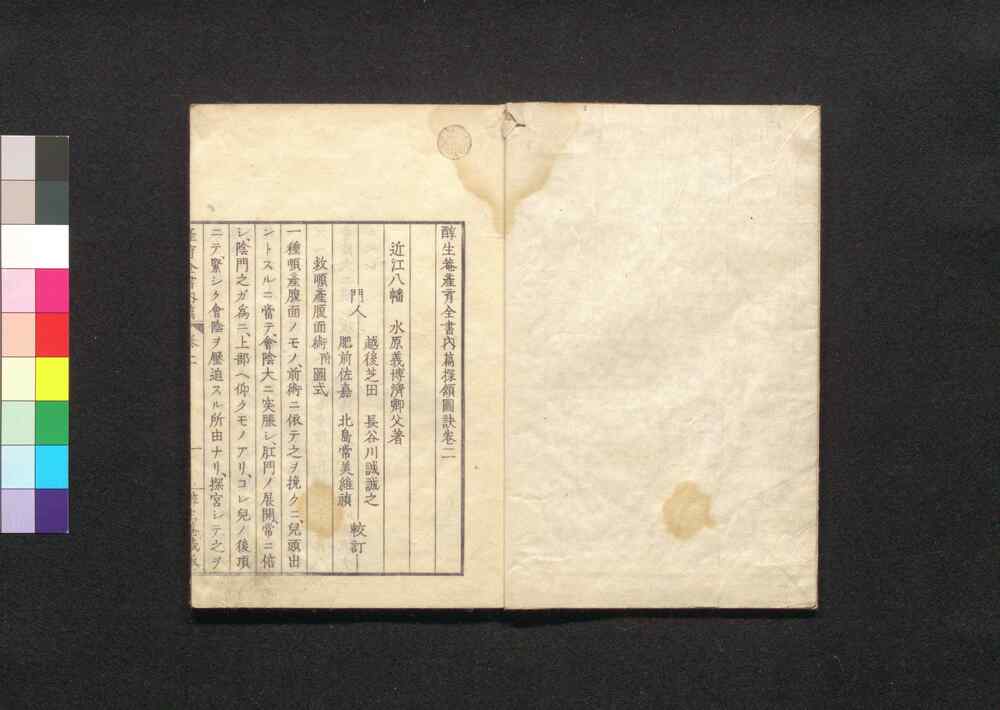 醇生菴產育全書內篇探頷圖訣卷二
近江八幡　水原義博濟卿父著
門人
越後芝田　長谷川誠誠之
肥前佐嘉　北島常美維禎
較訂
救順產腹面術附圖式
一種順產腹面ノモノ、前術ニ依テ之ヲ挽クニ、兒頭出
ントスルニ當テ、會陰大ニ突脹シ、肛門ノ展開、常ニ倍
シ、陰門之ガ爲ニ、上部ヘ仰クモノアリ、コレ兒ノ後項
ニテ、緊シク會陰ヲ壓迫スル所由ナリ、探宮シテ之ヲ